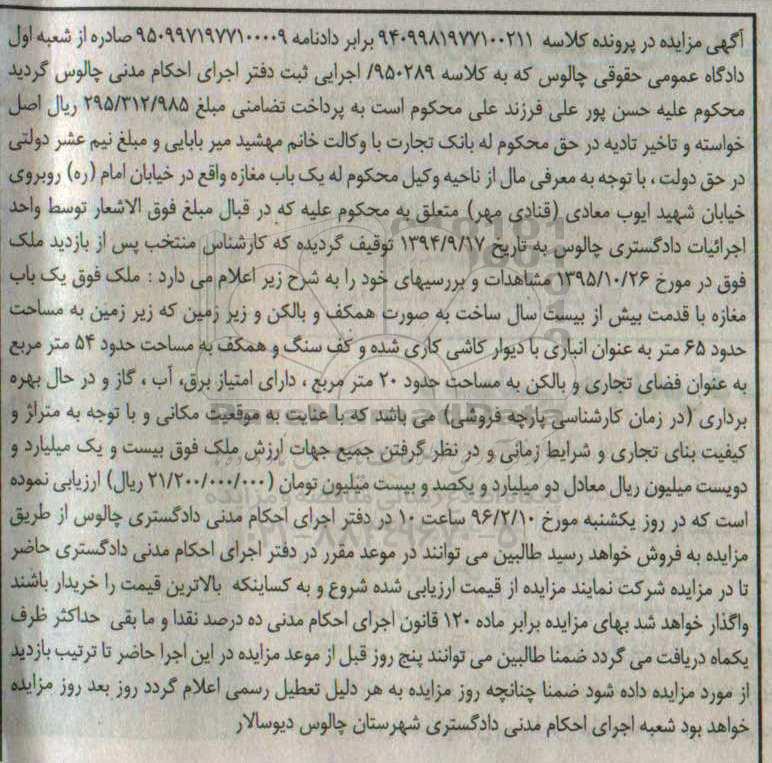 آگهی مزایده در پرونده کلاسه ۹۴۰۹۹۸۱۹۷۷۱۰۰۲۱۱ برابر دادنامه ۹۵۰۹۹۷۱۹۷۷۱۰۰۰۰۹ صادره از شعبه اول
دادگاه عمومی حقوقی چالوس که به کلاسه ۹۵۰۲۸۹/ اجرایی ثبت دفتر اجرای احکام مدنی چالوس گردید
محکوم علیه حسن پور علی فرزند علی محکوم است به پرداخت تضامنی مبلغ ۲۹۵/۳۱۲/۹۸۵ ریال اصل
خواسته و تاخیر تادیه در حق محکوم له بانک تجارت با وکالت خانم مهشید میر بابایی و مبلغ نیم عشر دولتی
در حق دولت ، با توجه به معرفی مال از ناحیه وکیل محکوم له یک باب مغازه واقع در خیابان امام (ره) روبروی
خیابان شهید ایوب معادی (قنادی مهر) متعلق به محکوم علیه که در قبال مبلغ فوق الاشعار توسط واحد
اجرائیات دادگستری چالوس به تاریخ ۱۳۹۴/۹/۱۷ توقیف گردیده که کارشناس منتخب پس از بازدید ملک
فوق در مورخ ۱۳۹۵/۱۰/۲۶ مشاهدات و بررسیهای خود را به شرح زیر اعلام می دارد : ملک فوق یک باب
مغازه با قدمت بیش از بیست سال ساخت به صورت همکف و بالکن و زیر زمین که زیر زمین به مساحت
حدود ۶۵ متر به عنوان انباری با دیوار کاشی کاری شده و کف سنگ و همکف به مساحت حدود ۵۴ متر مربع
به عنوان فضای تجاری و بالکن به مساحت حدود ۲۰ متر مربع ، دارای امتیاز برق، آب ، گاز و در حال بهره
برداری (در زمان کارشناسی پارچه فروشی) می باشد که با عنایت به موقعیت مکانی و با توجه به متراژ و
کیفیت بنای تجاری و شرایط زمانی و در نظر گرفتن جمیع جهات ارزش ملک فوق بیست و یک میلیارد و
دویست میلیون ریال معادل دو میلیارد و یکصد و بیست میلیون تومان (۲۱/۲۰۰/۰۰۰/۰۰۰ ریال) ارزیابی نموده
است که در روز یکشنبه مورخ ۹۶/۲/۱۰ ساعت ۱۰ در دفتر اجرای احکام مدنی دادگستری چالوس از طریق
مزایده به فروش خواهد رسید طالبین می توانند در موعد مقرر در دفتر اجرای احکام مدنی دادگستری حاضر
تا در مزایده شرکت نمایند مزایده از قیمت ارزیابی شده شروع و به کسانیکه بالاترین قیمت را خریدار باشند
واگذار خواهد شد بهای مزایده برابر ماده ۱۲۰ قانون اجرای احکام مدنی ده درصد نقدا و ما بقی حداکثر ظرف
یکماه دریافت می گردد ضمنا طالبین می توانند پنج روز قبل از موعد مزایده در این اجرا حاضر تا ترتیب بازدید
از مورد مزایده داده شود ضمنا چنانچه روز مزایده به هر دلیل تعطیل رسمی اعلام گردد روز بعد روز مزایده
خواهد بود شعبه اجرای احکام مدنی دادگستری شهرستان چالوس دیوسالار